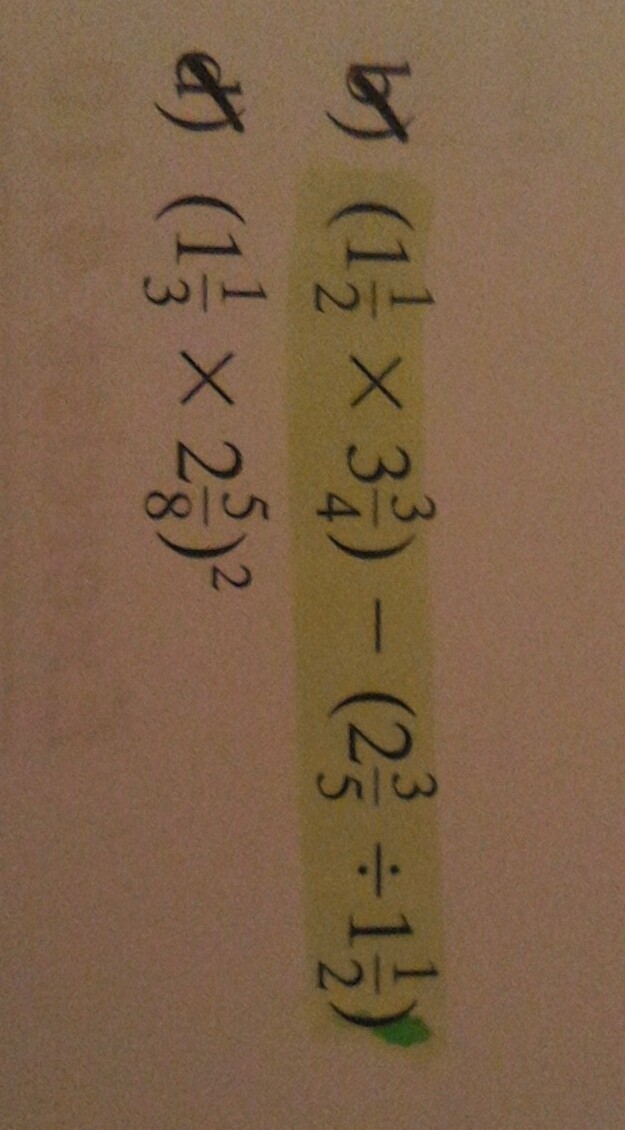 b) (1 1/2 × 3 3/4) − (2 3/5 ÷ 1 1/2)
d) (1 1/3 × 2 5/8)²